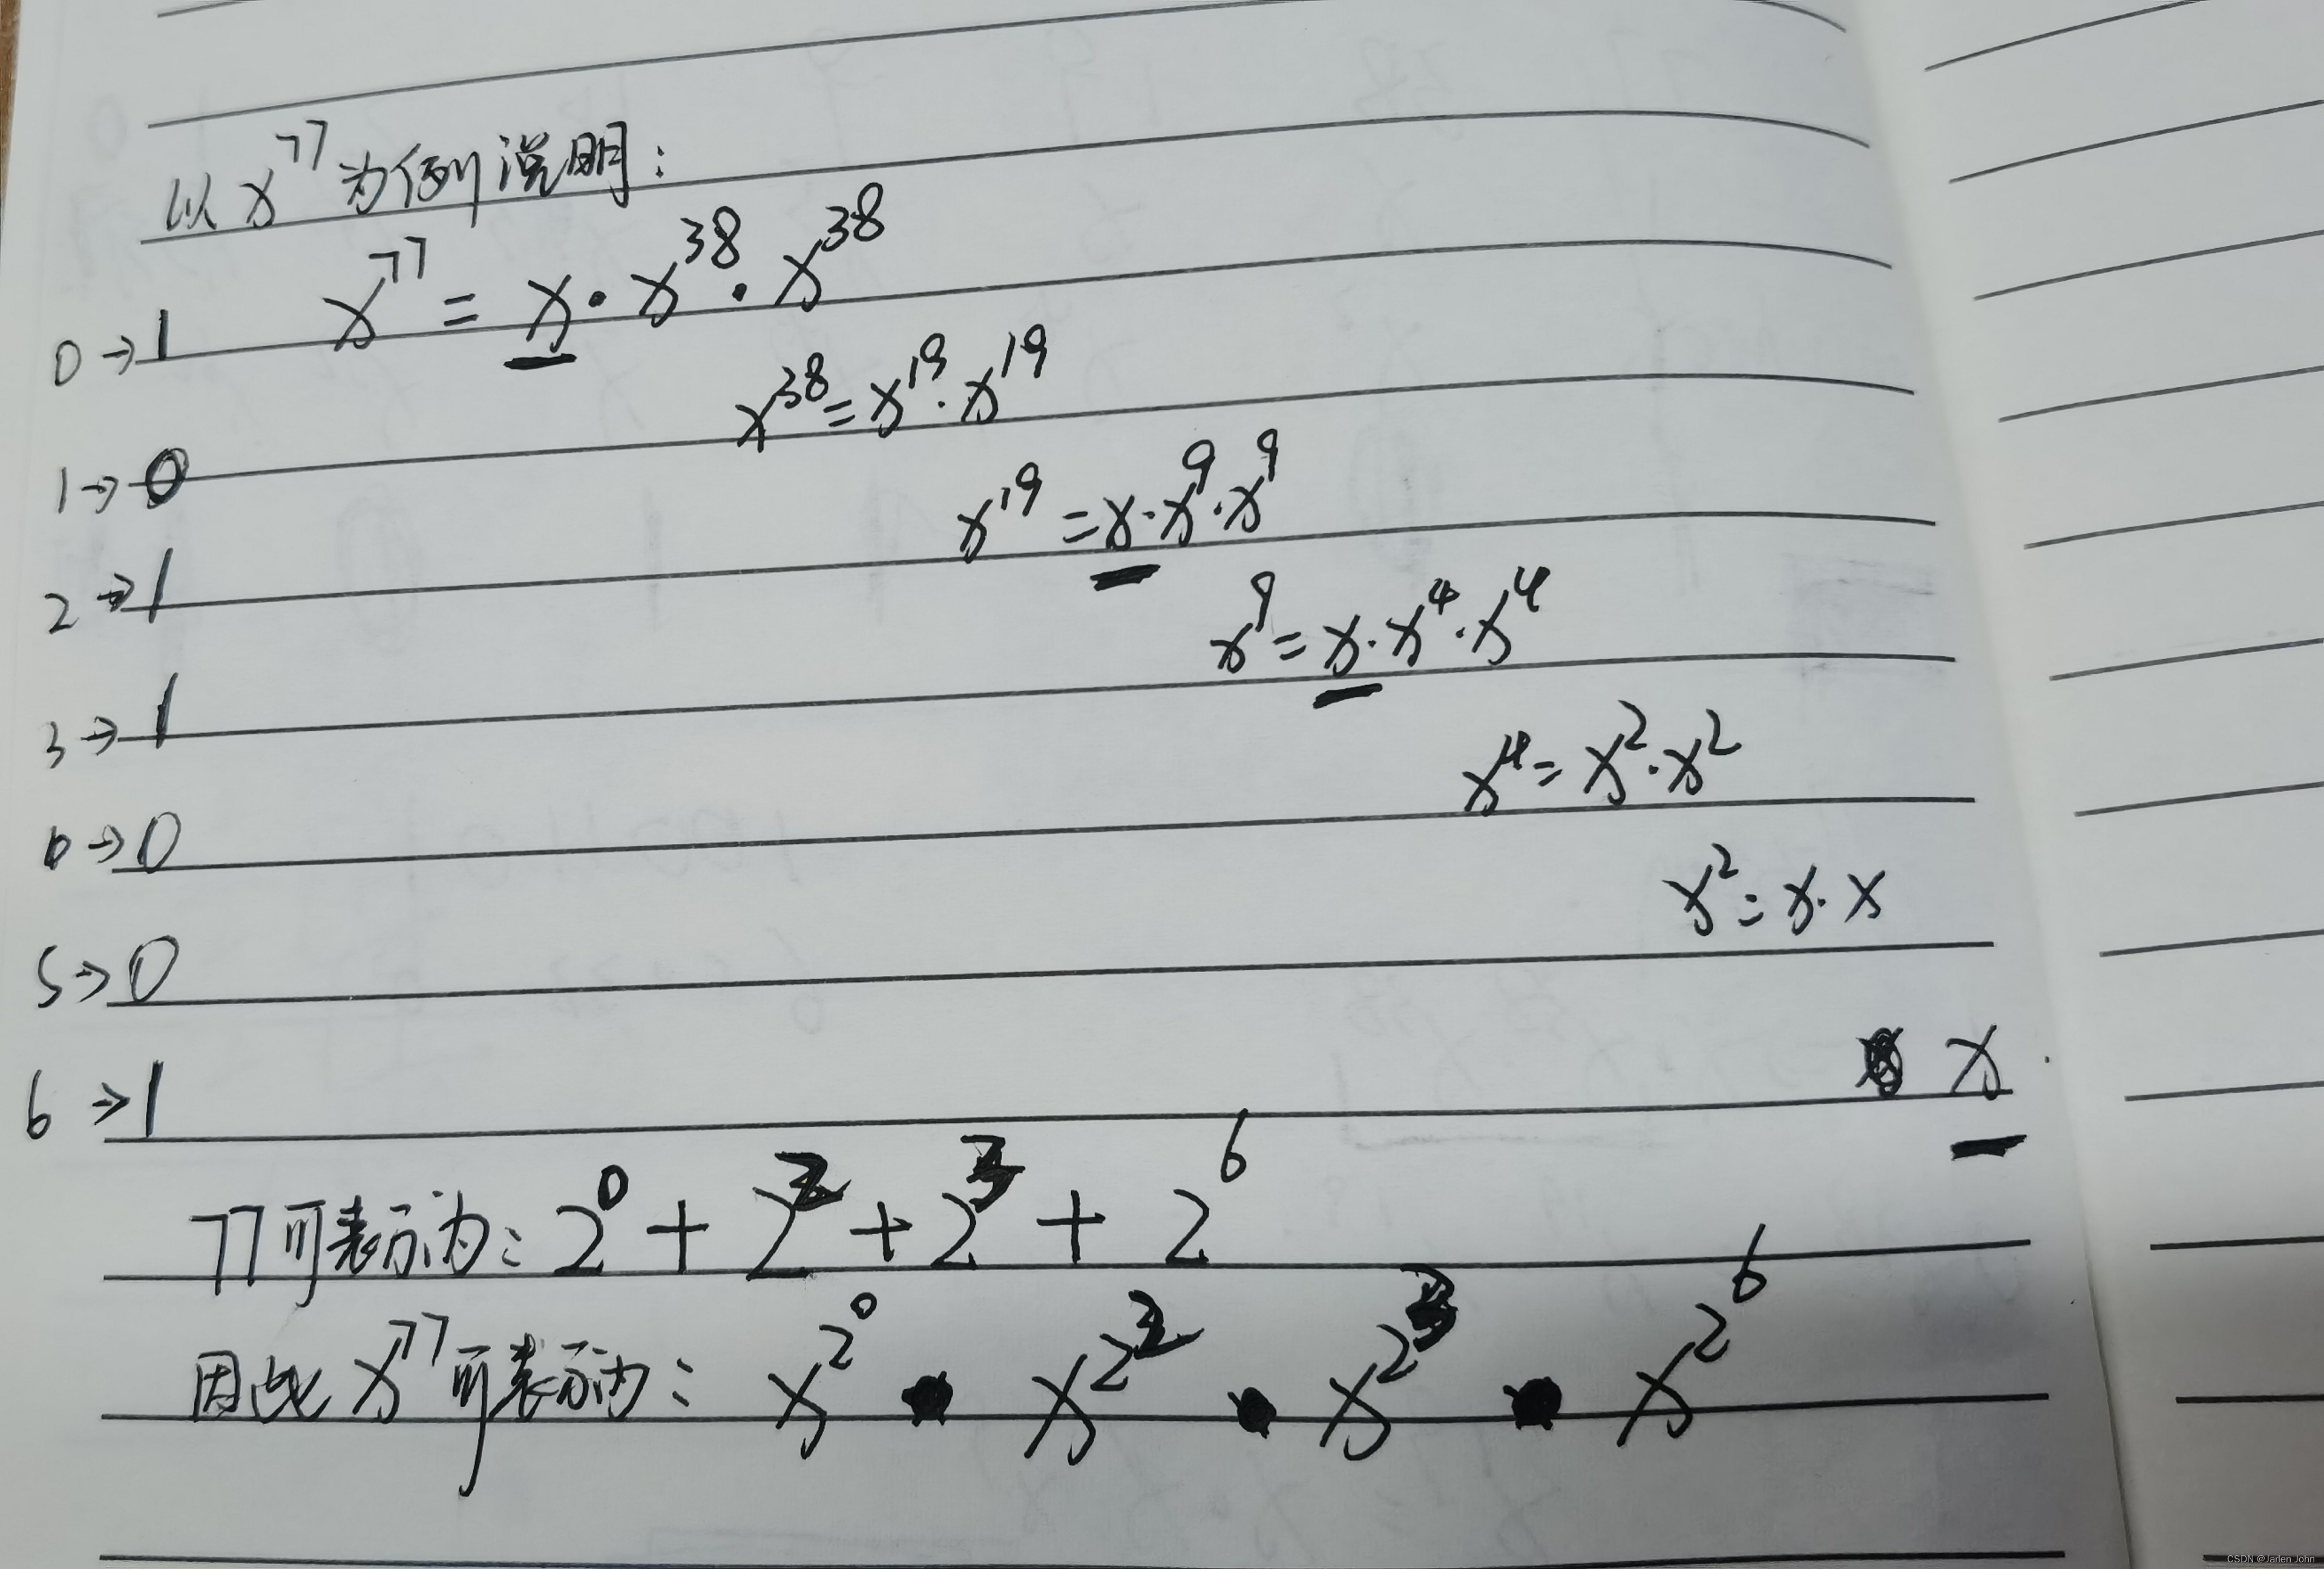 以 x^77 为例说明:
0→1 x^77 = x · x^38 · x^38
x^38 = x^19 · x^19
1→0
x^19 = x · x^9 · x^9
2→1
x^9 = x · x^4 · x^4
3→1
x^4 = x^2 · x^2
→0
x^2 = x · x
5→0
x
6→1
77可表示为: 2^0 + 2^2 + 2^3 + 2^6
因此 x^77 可表示为: x^2^0 · x^2^2 · x^2^3 · x^2^6
CSDN @Jarlen John